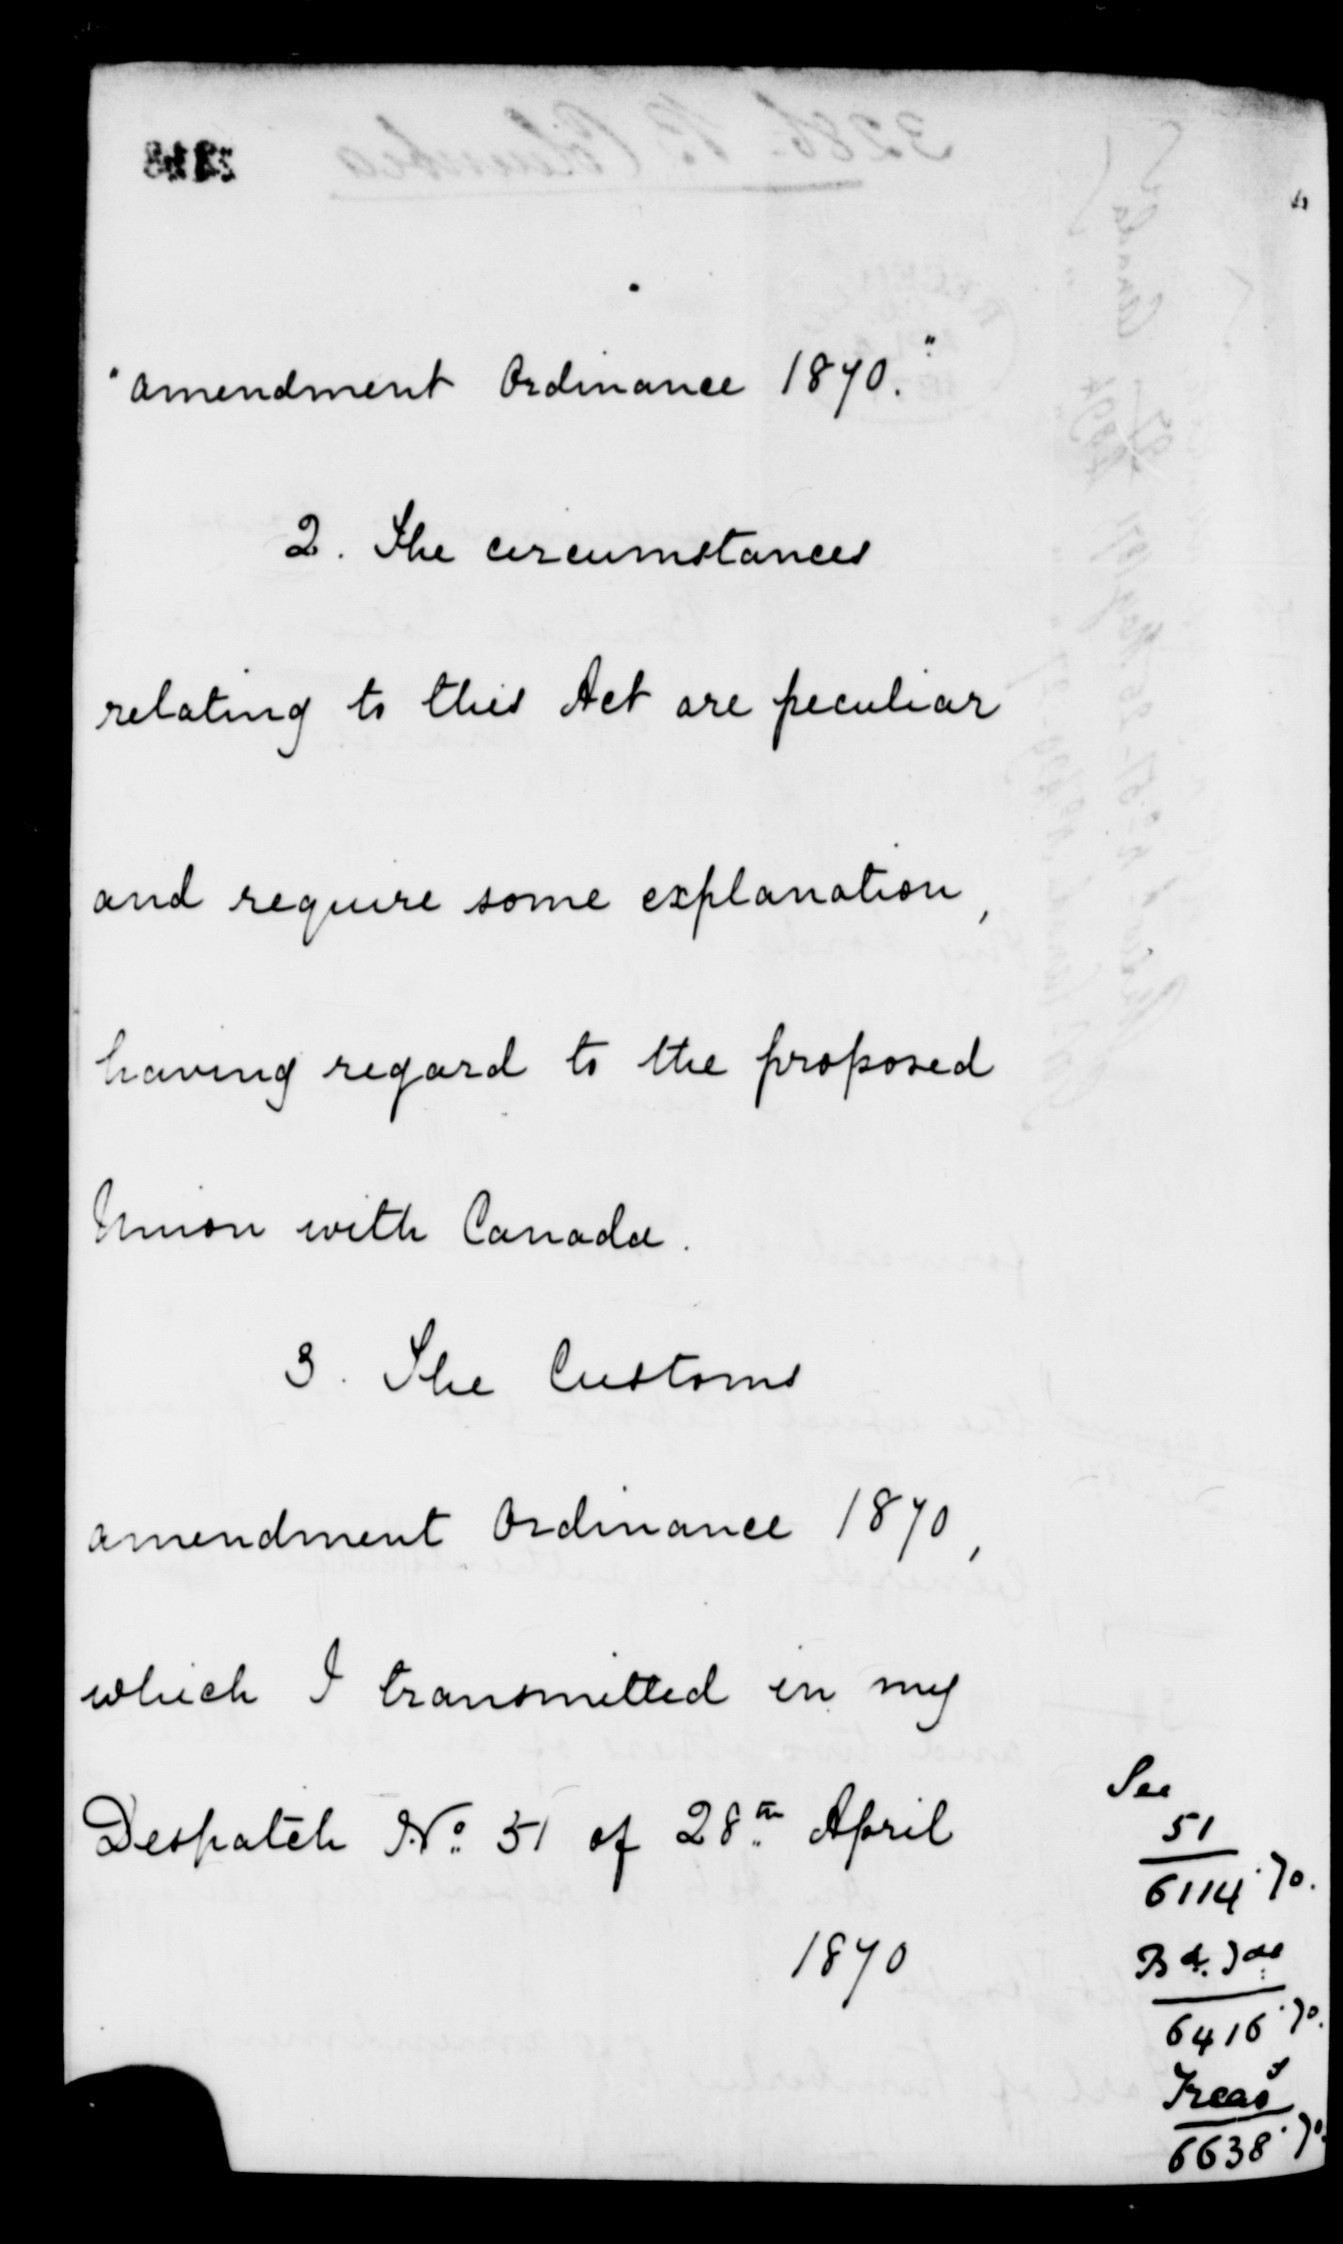 "amendment Ordinance 1870."
2. The circumstances
relating to this Act are peculiar
and require some explanation,
having regard to the proposed
Union with Canada.
3. The Customs
amendment Ordinance 1870,
which I transmitted in my
Despatch No. 51 of 28th April
1870
See
51
6114.70.
Bd. Tde
6416.70.
Treasy
6638.70.